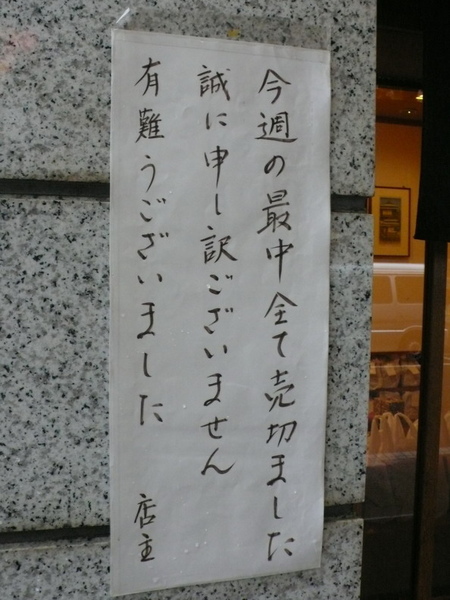 今週の最中全て売切ました
誠に申し訳ございません
有難うございました 店主